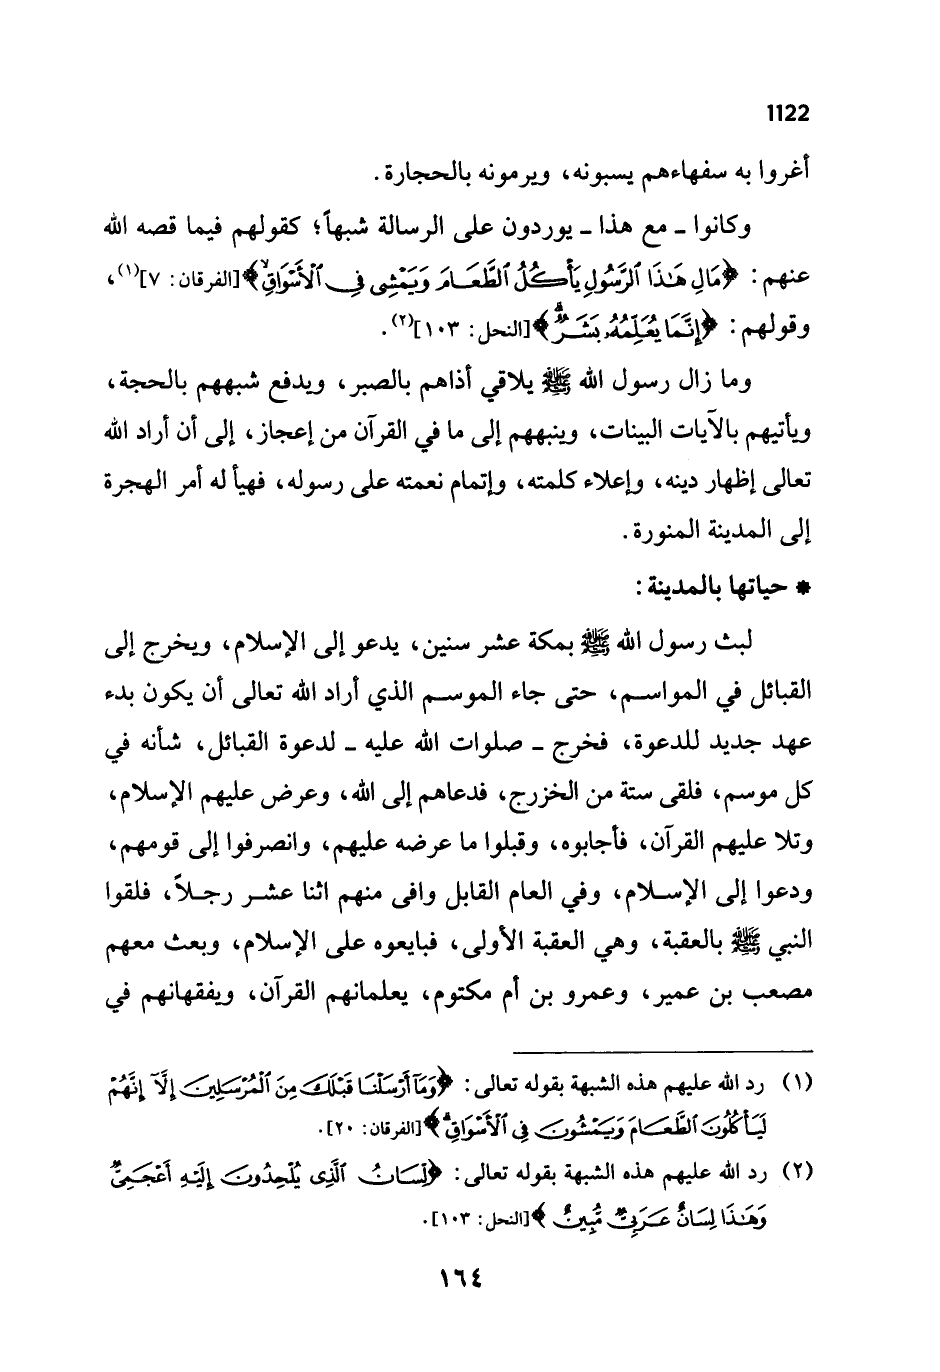 1122
أغروا به سفهاءهم يسبونه، ويرمونه بالحجارة.
وكانوا ـ مع هذا ـ يوردون على الرسالة شبهاً؛ كقولهم فيما قصه الله
عنهم: ﴿مَالِ هَٰذَا ٱلرَّسُولِ يَأْكُلُ ٱلطَّعَامَ وَيَمْشِى فِى ٱلْأَسْوَاقِ ۙ﴾[الفرقان: ٧](١)،
وقولهم: ﴿إِنَّمَا يُعَلِّمُهُۥ بَشَرٌ ۗ﴾[النحل: ١٠٣](٢).
وما زال رسول الله ﷺ يلاقي أذاهم بالصبر، ويدفع شبههم بالحجة،
ويأتيهم بالآيات البينات، وينبههم إلى ما في القرآن من إعجاز، إلى أن أراد الله
تعالى إظهار دينه، وإعلاء كلمته، وإتمام نعمته على رسوله، فهيأ له أمر الهجرة
إلى المدينة المنورة.
* حياتها بالمدينة:
لبث رسول الله ﷺ بمكة عشر سنين، يدعو إلى الإسلام، ويخرج إلى
القبائل في المواسم، حتى جاء الموسم الذي أراد الله تعالى أن يكون بدء
عهد جديد للدعوة، فخرج ـ صلوات الله عليه ـ لدعوة القبائل، شأنه في
كل موسم، فلقى ستة من الخزرج، فدعاهم إلى الله، وعرض عليهم الإسلام،
وتلا عليهم القرآن، فأجابوه، وقبلوا ما عرضه عليهم، وانصرفوا إلى قومهم،
ودعوا إلى الإسلام، وفي العام القابل وافى منهم اثنا عشر رجلاً، فلقوا
النبي ﷺ بالعقبة، وهي العقبة الأولى، فبايعوه على الإسلام، وبعث معهم
مصعب بن عمير، وعمرو بن أم مكتوم، يعلمانهم القرآن، ويفقهانهم في
(١) رد الله عليهم هذه الشبهة بقوله تعالى: ﴿وَمَآ أَرْسَلْنَا قَبْلَكَ مِنَ ٱلْمُرْسَلِينَ إِلَّآ إِنَّهُمْ
لَيَأْكُلُونَ ٱلطَّعَامَ وَيَمْشُونَ فِى ٱلْأَسْوَاقِ ۗ﴾[الفرقان: ٢٠].
(٢) رد الله عليهم هذه الشبهة بقوله تعالى: ﴿لِّسَانُ ٱلَّذِى يُلْحِدُونَ إِلَيْهِ أَعْجَمِىٌّ
وَهَٰذَا لِسَانٌ عَرَبِىٌّ مُّبِينٌ﴾[النحل: ١٠٣].
١٦٤